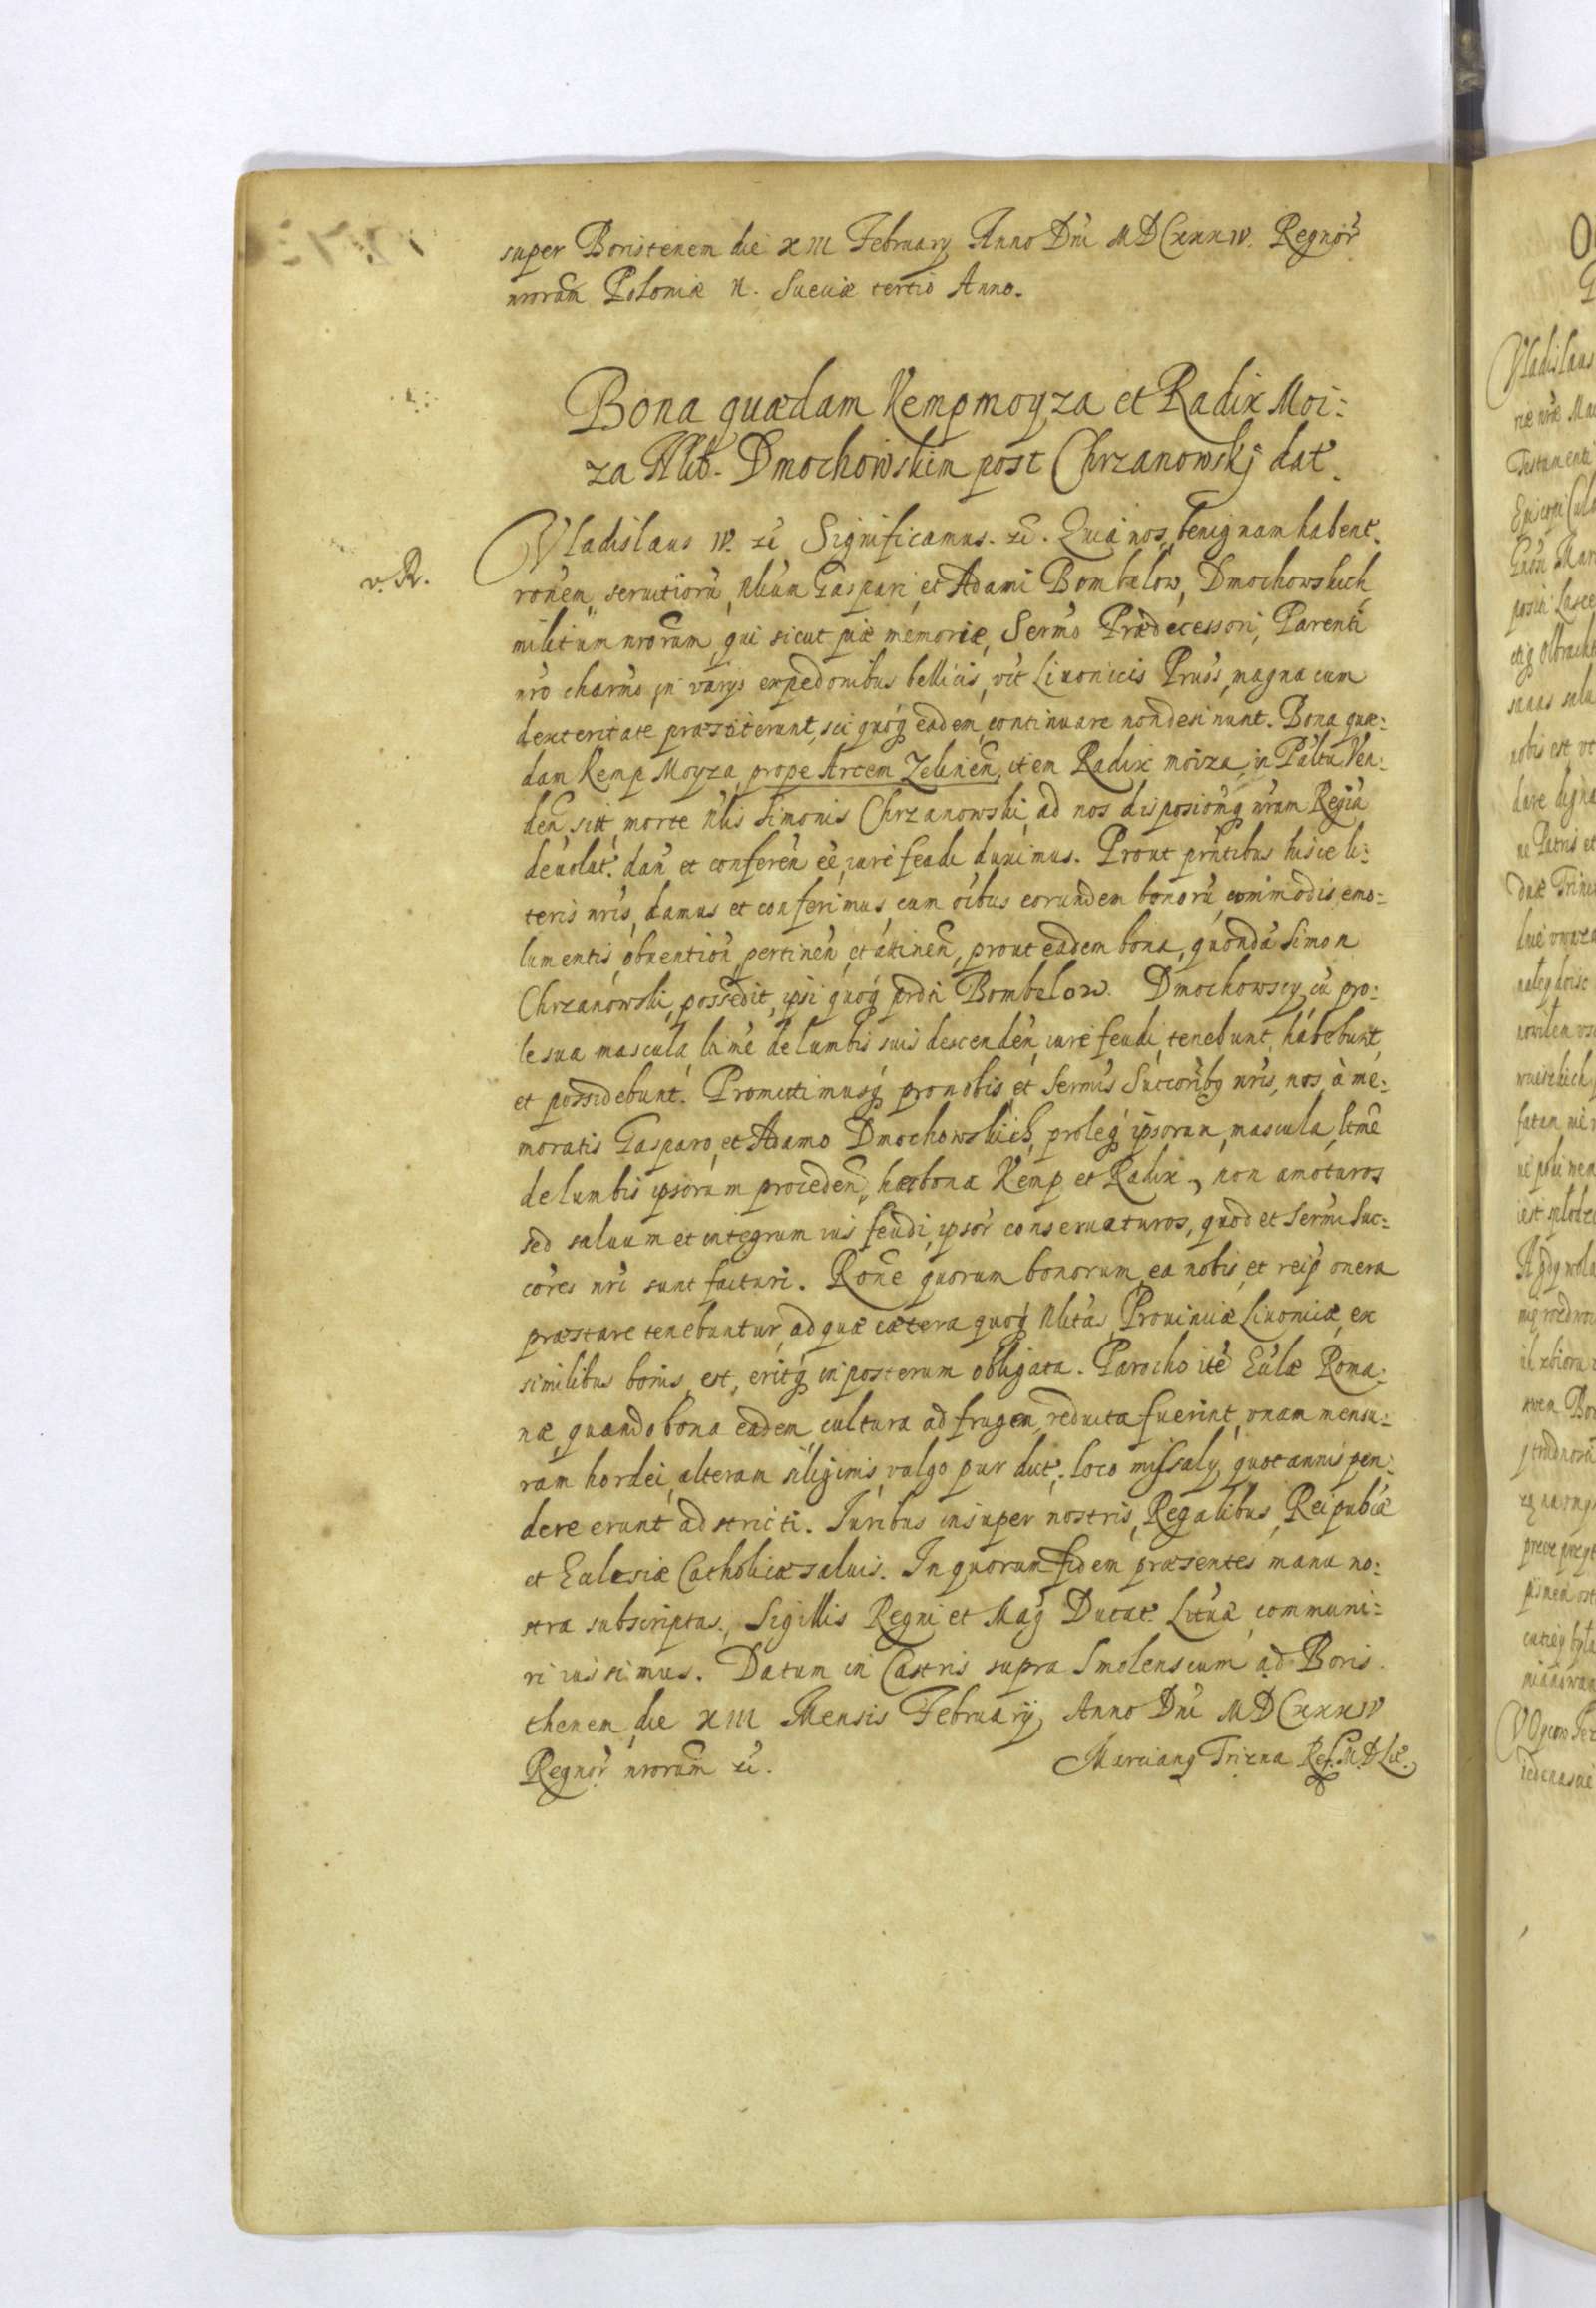 super Boristenem die XIII February Anno Dni MDCxxxiv. Regnor
nrorum Poloniæ N. Sueciæ tertio Anno.
Bona quædam Kempmoyza et Radix Moi:
za Nlib. Dmochowskim post Chrzanowskj dat.
v. R.
Vladislaus IV. etc Significamus. etc. Quia nos, benignam habent.
ronem seruitioru, Nlium Gaspari, et Adami Bombelow, Dmochowskich
militum nrorum, qui sicut piæ memoriæ, Sermo Prædecessori, Parenti
nro charmo in varys expedonibus bellicis, vt Liuonicis Prus, magna cum
dexteritate præstiterunt, sci quoq eadem, continuare non desinunt. Bona quæ:
dam Kemp Moyza, prope Arcem Zelinen, item Radix moiza, in Paltu Ven:
den, sitt, morte Nlis Simonis Chrzanowski, ad nos disposionq nram Regia
deuolut. dan et conferen ee, iure feudi duximus. Prout prntibus hisce li:
teris nris, damus et conferimus, cum oibus eorundem bonoru, commodis, emo:
lumentis, obuention, pertinen, et attinen, prout eadem bona, quonda Simon
Chrzanowski, possedit, ipsi quoq prdti Bombelow. Dmochowscy, cu pro:
le sua mascula ltime de lumbis suis descenden, iure feudi, tenebunt, habebunt,
et possidebunt. Promittimusq pro nobis et Sermis Succoribq nris, nos, à me:
moratis Gasparo, et Adamo Dmochowskich, proleq ipsorum, mascula, ltime
de lumbis ipsorum proceden, hæc bona Kemp et Radix, non amoturos
sed saluum et integrum ius feudi, ipsor conseruaturos, quod et Sermi Suc:
cores nri sunt facturi. Rone quorum bonorum, ea nobis, et reip onera
præstare tenebuntur, ad quæ cætera quoq Nlitas, Prouinciæ Liuoniæ, ex
similibus bonis, est, eritq in posterum obligata. Parocho ite Eclæ Roma:
næ, quando bona eadem, cultura ad frugem, reducta fuerint, vnam mensu:
ram hordei, alteram siliginis, vulgo pur dict. loco missaly, quotannis pen:
dere erunt adstricti. Iuribus insuper nostris, Regalibus, Reipublcæ
et Eclesiæ Catholicæ saluis. In quorum fidem præsentes manu no:
stra subscriptas, Sigillis Regni et Mag Ducat. Lituæ, communi:
ri iussimus. Datum in Castris supra Smolenscum ad Boris
thenem, die XIII Mensis Februarij, Anno Dni MDCxxxiv
Regnor nrorum etc.
Marcianq Trizna Ref. M. D. Lit.